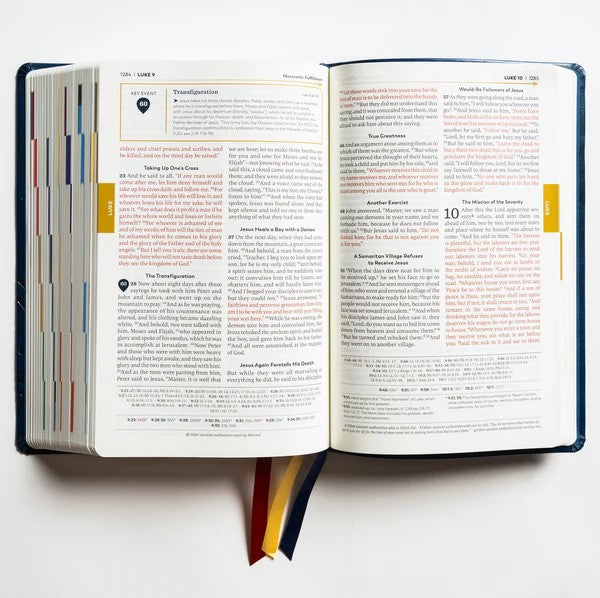 1284 | LUKE 9
Messianic Fulfillment
KEY EVENT
60
Transfiguration
Jesus takes his three closest disciples, Peter, James, and John, up a mountain,
LUKE
elders and chief priests and scribes, and
be killed, and on the third day be raised."
Taking Up One's Cross
23 And he said to all, "If any man would
come after me, let him deny himself and
take up his cross daily and follow me. 24For
whoever would save his life will lose it; and
whoever loses his life for my sake, he will
save it. 25For what does it profit a man if he
gains the whole world and loses or forfeits
himself? 26For whoever is ashamed of me
and of my words, of him will the Son of man
be ashamed when he comes in his glory
and the glory of the Father and of the holy
angels. 27But I tell you truly, there are some
standing here who will not taste death before
they see the kingdom of God."
The Transfiguration
60
28 Now about eight days after these
sayings he took with him Peter and
John and James, and went up on the
mountain to pray. 29And as he was praying,
the appearance of his countenance was
altered, and his clothing became dazzling
white. 30And behold, two men talked with
him, Moses and Elijah, 31who appeared in
glory and spoke of his exodus, which he was
to accomplish at Jerusalem. 32Now Peter
and those who were with him were heavy
with sleep but kept awake, and they saw his
glory and the two men who stood with him.
33And as the men were parting from him,
Peter said to Jesus, "Master, it is well that
we are here; let us make three booths, one
for you and one for Moses and one for
Elijah"—not knowing what he said. 34As he
said this, a cloud came and overshadowed
them; and they were afraid as they entered
the cloud. 35And a voice came out of the
cloud, saying, "This is my Son, my Chosen;
listen to him!" 36And when the voice had
spoken, Jesus was found alone. And they
kept silence and told no one in those days
anything of what they had seen.
Jesus Heals a Boy with a Demon
37 On the next day, when they had come
down from the mountain, a great crowd met
him. 38And behold, a man from the crowd
cried, "Teacher, I beg you to look upon my
son, for he is my only child; 39and behold,
a spirit seizes him, and he suddenly cries
out; it convulses him till he foams, and
shatters him, and will hardly leave him.
40And I begged your disciples to cast it out,
but they could not." 41Jesus answered, "O
faithless and perverse generation, how long
am I to be with you and bear with you? Bring
your son here." 42While he was coming, the
demon tore him and convulsed him. But
Jesus rebuked the unclean spirit, and healed
the boy, and gave him back to his father.
43And all were astonished at the majesty
of God.
Jesus Again Foretells His Death
But while they were all marveling at
everything he did, he said to his disciples,
LUKE 10 | 1285
44"Let these words sink into your ears; for the
Son of man is to be delivered into the hands
of men." 45But they did not understand this
saying, and it was concealed from them, that
they should not perceive it; and they were
afraid to ask him about this saying.
True Greatness
46 And an argument arose among them as to
which of them was the greatest. 47But when
Jesus perceived the thought of their hearts,
he took a child and put him by his side, 48and
said to them, "Whoever receives this child in
my name receives me, and whoever receives
me receives him who sent me; for he who is
least among you all is the one who is great."
Another Exorcist
49 John answered, "Master, we saw a man
casting out demons in your name, and we
forbade him, because he does not follow
with us." 50But Jesus said to him, "Do
not forbid him; for he that is not against you
is for you."
A Samaritan Village Refuses
to Receive Jesus
51 When the days drew near for him to
be received up, he set his face to go to
Jerusalem. 52And he sent messengers ahead
of him, who went and entered a village of the
Samaritans, to make ready for him; 53but the
people would not receive him, because his
face was set toward Jerusalem. 54And when
his disciples James and John saw it, they
said, "Lord, do you want us to bid fire come
down from heaven and consume them?"
55But he turned and rebuked them. 56And
they went on to another village.
Would-Be Followers of Jesus
57 As they were going along the road, a man
said to him, "I will follow you wherever you
go." 58And Jesus said to him, "Foxes have
holes, and birds of the air have nests; but the
Son of man has nowhere to lay his head." 59To
another he said, "Follow me." But he said,
"Lord, let me first go and bury my father."
60But he said to him, "Leave the dead to
bury their own dead; but as for you, go and
proclaim the kingdom of God." 61Another
said, "I will follow you, Lord; but let me first
say farewell to those at my home." 62Jesus
said to him, "No one who puts his hand to
the plow and looks back is fit for the
kingdom of God."
The Mission of the Seventy
10 After this the Lord appointed
seventy others, and sent them on
ahead of him, two by two, into every town
and place where he himself was about to
come. 2And he said to them, "The harvest
is plentiful, but the laborers are few; pray
therefore the Lord of the harvest to send
out laborers into his harvest. 3Go your
way; behold, I send you out as lambs in
the midst of wolves. 4Carry no purse, no
bag, no sandals; and salute no one on the
road. 5Whatever house you enter, first say,
'Peace be to this house!' 6And if a son of
peace is there, your peace shall rest upon
him; but if not, it shall return to you. 7And
remain in the same house, eating and
drinking what they provide, for the laborer
deserves his wages; do not go from house
to house. 8Whenever you enter a town and
they receive you, eat what is set before
you; 9heal the sick in it and say to them,
LUKE